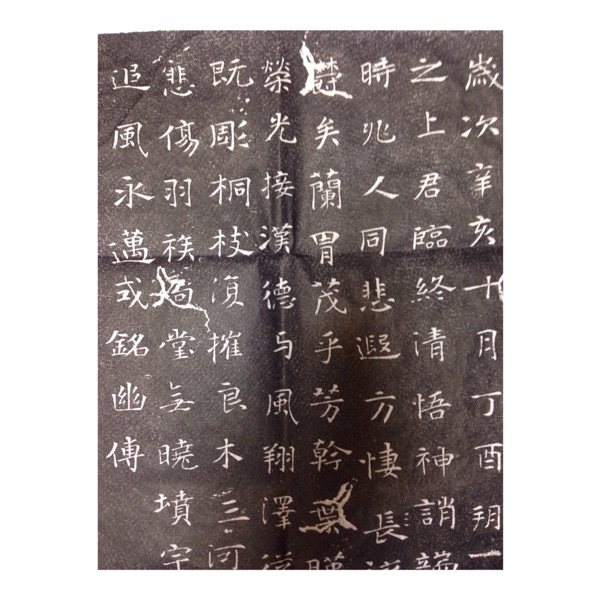 歲次辛亥十月丁酉朔一
之上君臨終清悟神誚端
時兆人同悲遐方悽長
楚矣蘭胃茂乎芳幹葉
榮光接漢德与風翔澤
既彫桐枝復摧良木三河
悲傷羽祲堂無曉墳宇
追風永邁式銘幽傳